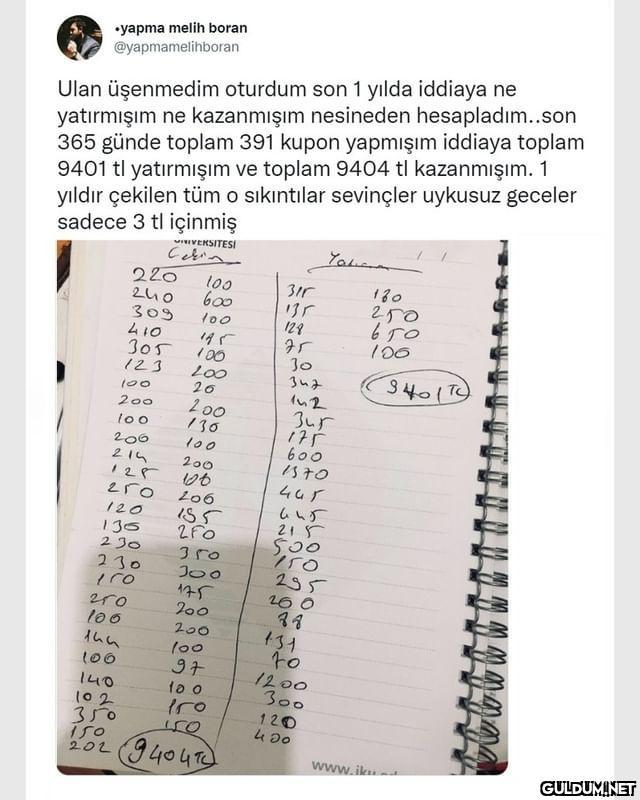 •yapma melih boran
@yapmamelihboran
Ulan üşenmedim oturdum son 1 yılda iddiaya ne
yatırmışım ne kazanmışım nesineden hesapladım..son
365 günde toplam 391 kupon yapmışım iddiaya toplam
9401 tl yatırmışım ve toplam 9404 tl kazanmışım. 1
yıldır çekilen tüm o sıkıntılar sevinçler uykusuz geceler
sadece 3 tl içinmiş
ÜNİVERSİTESİ
220
240
309
410
305
123
100
200
100
200
214
125
250
120
130
230
230
150
250
100
144
100
140
102
350
150
202
100
600
100
195
100
200
20
200
130
100
200
100
200
195
250
350
300
175
200
200
100
97
100
150
150
9404 TL
315
135
128
75
30
347
142
345
175
600
1370
445
445
215
500
150
295
200
88
131
70
1200
300
120
400
180
250
650
100
9401 TL
GULDUM.NET